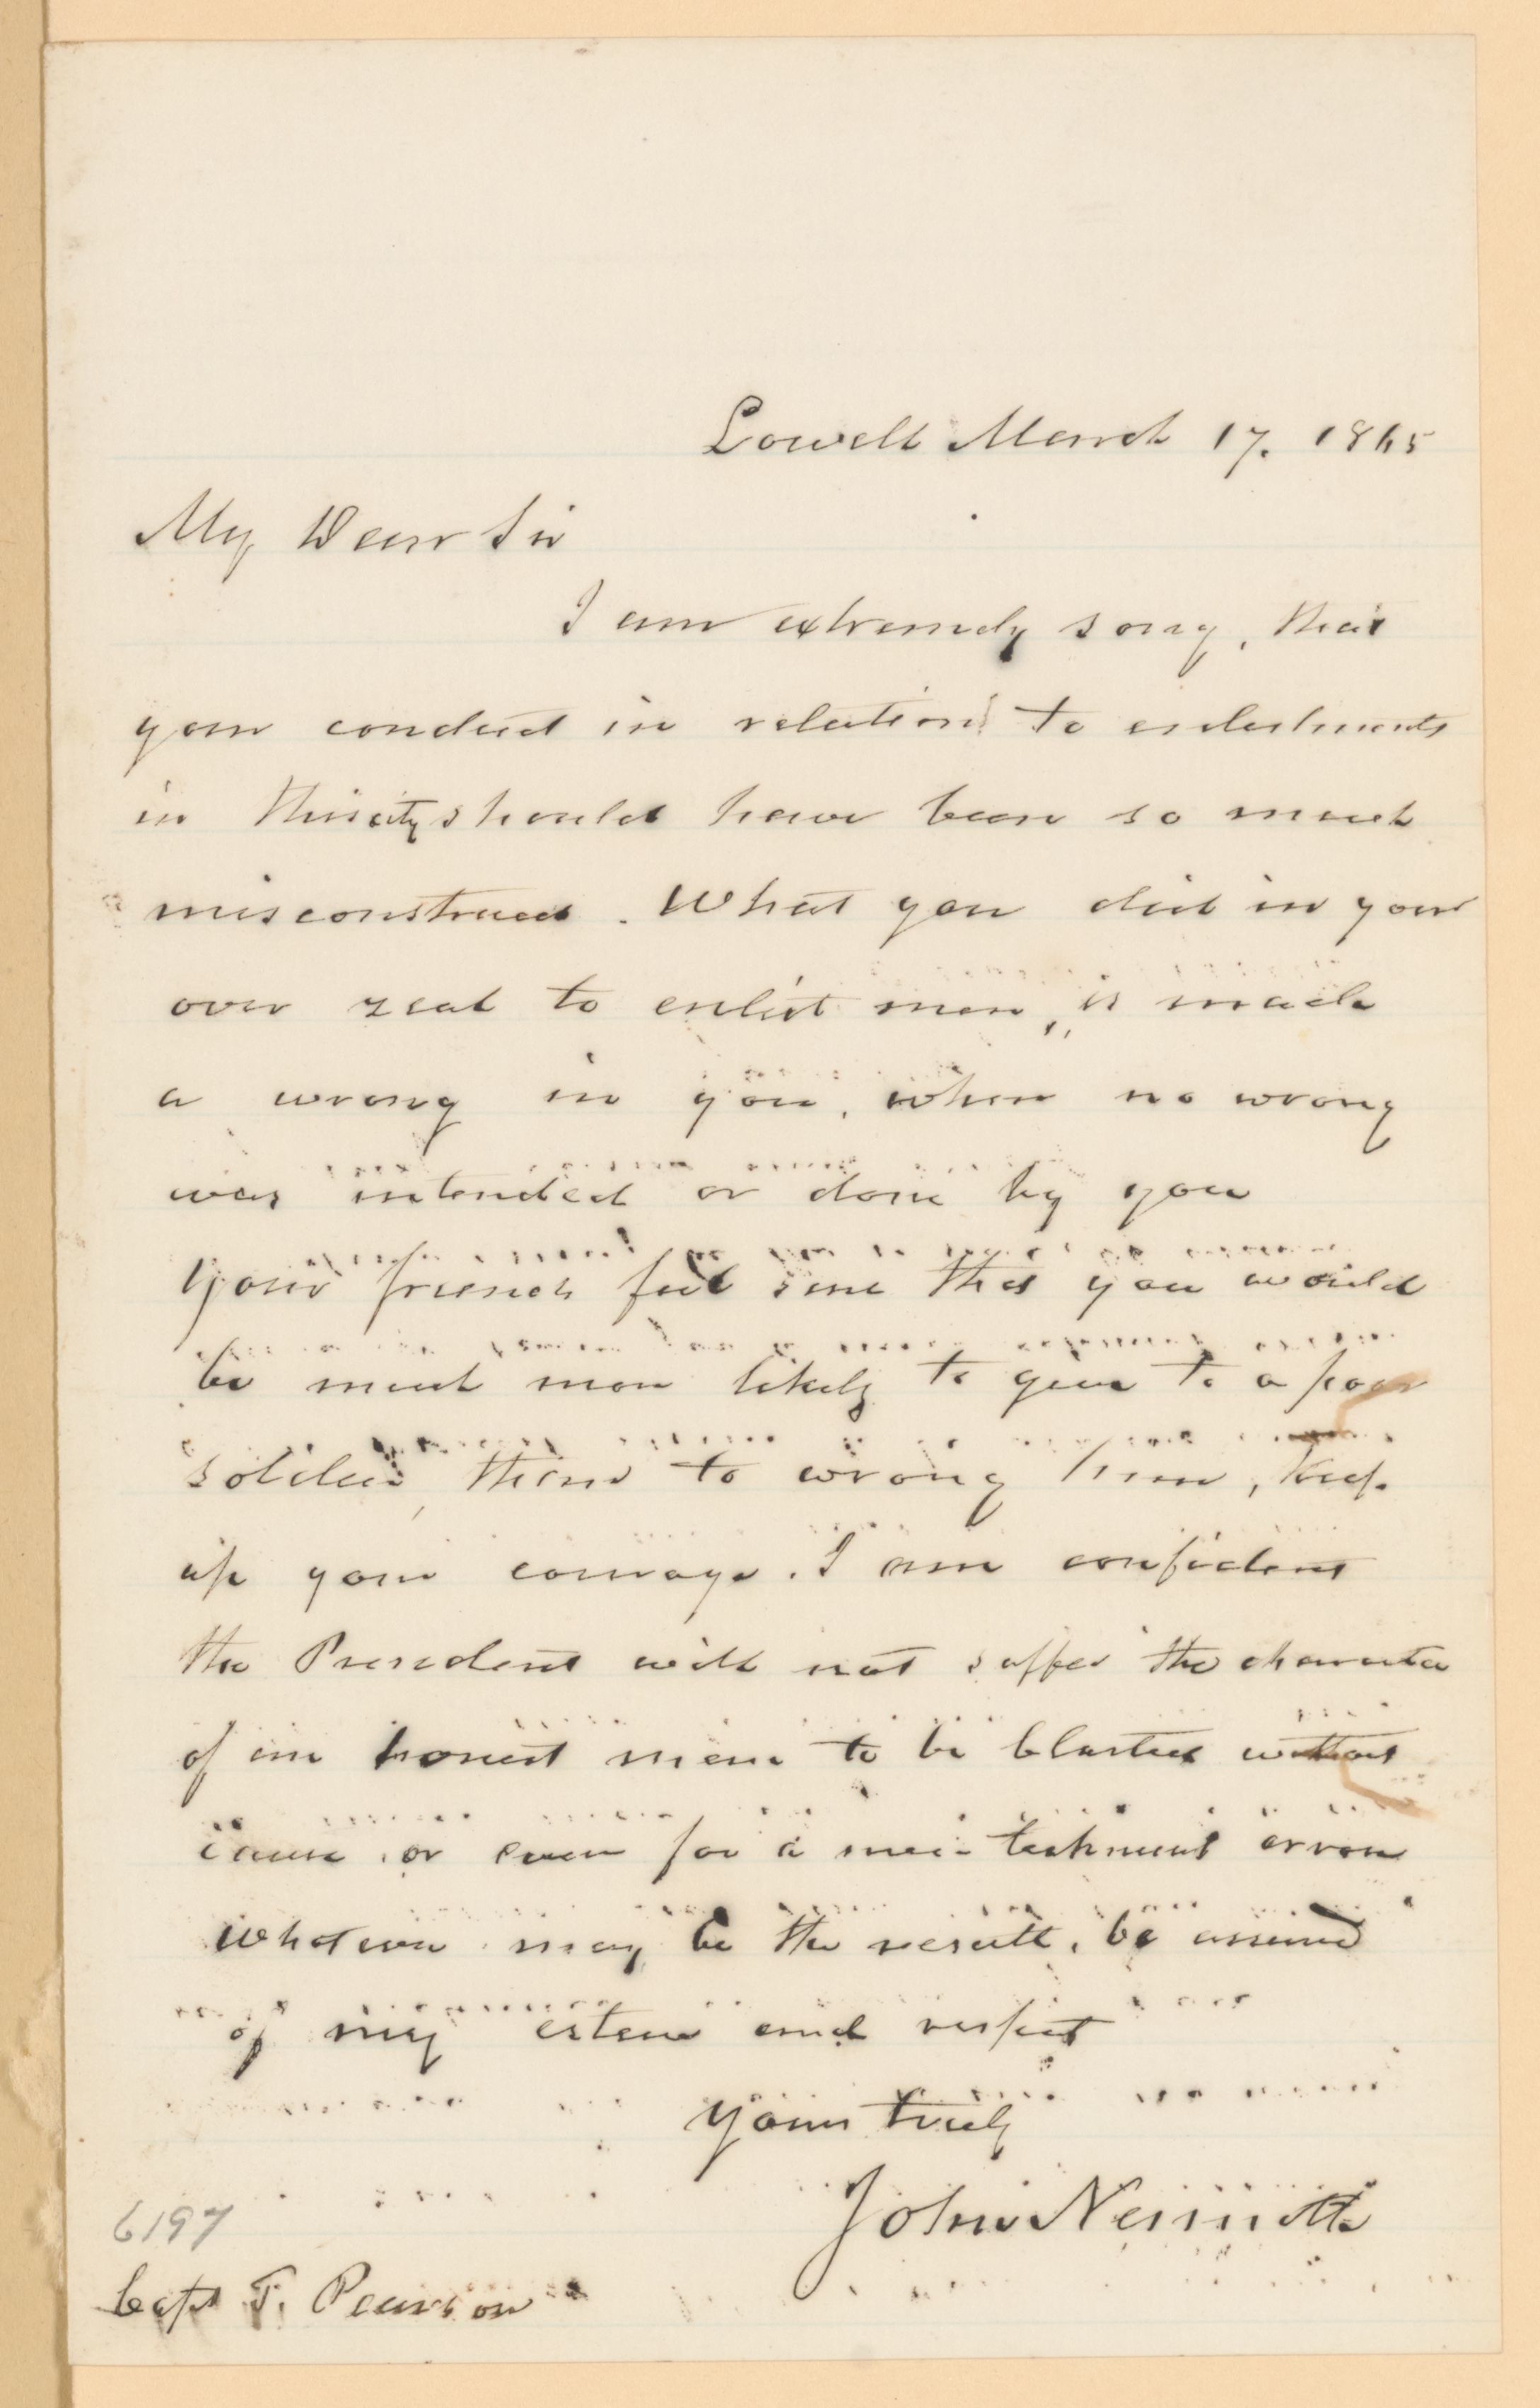 Lowell March 17. 1865
My Dear Sir
I am extremely sorry, that
your conduct in relation to enlistments
in this city should have been so much
misconstrued. What you did in your
over zeal to enlist men, is made
a wrong in you, when no wrong
was intended or done by you
Your friends feel sure that you would
be much more likely to give to a poor
soldier, than to wrong him, keep
up your courage. I am confident
the President will not suffer the character
of an honest man to be blasted without
cause, or even for a mere technical error
whatever may be the result, be assured
of my esteem and respect
Yours truly
John Nesmith
6197
Capt T. Pearson